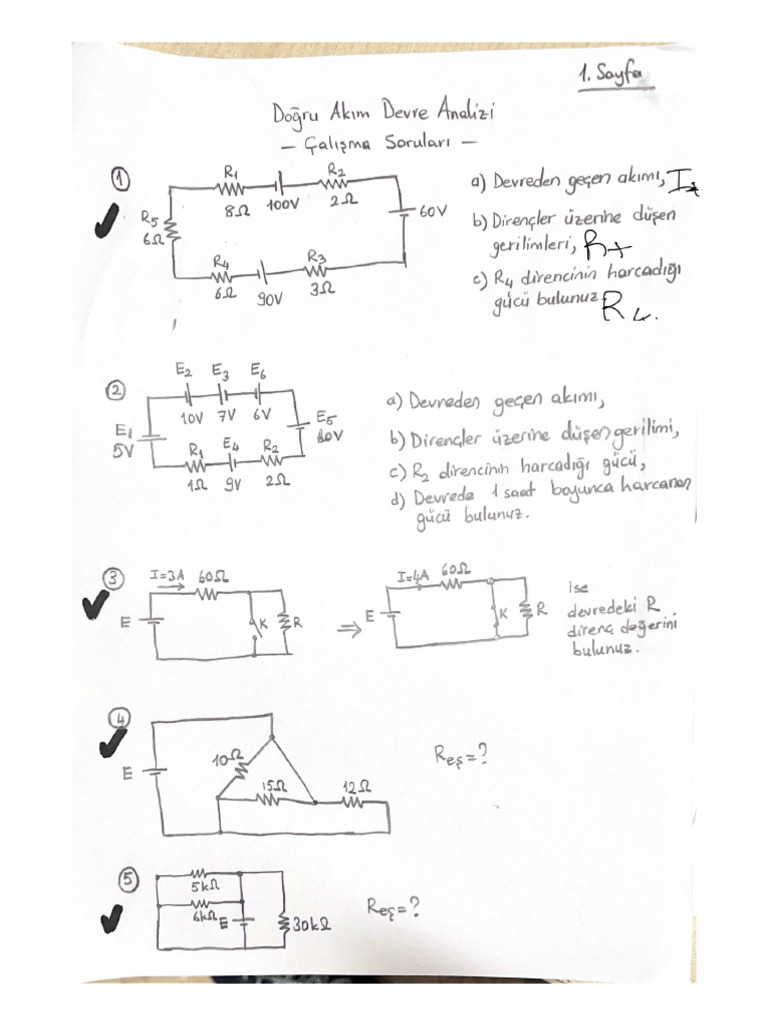 1. Sayfa
Doğru Akım Devre Analizi
— Çalışma Soruları —
1
R1
8Ω
100V
R2
2Ω
60V
R5
6Ω
R4
6Ω
90V
R3
3Ω
a) Devreden geçen akımı,
b) Dirençler üzerine düşen
gerilimleri,
c) R4 direncinin harcadığı
gücü bulunuz
2
E2 E3 E6
10V 7V 6V
E1
5V
E5
R1 E4 R2
1Ω 9V 2Ω
a) Devreden geçen akımı,
b) Dirençler üzerine düşen gerilimi,
c) R2 direncinin harcadığı gücü,
d) Devrede 1 saat boyunca harcanan
gücü bulunuz.
3
I=3A 60Ω
E
K
R
⇒
I=4A 60Ω
E
K
R
ise
devredeki R
direnç değerini
bulunuz.
4
E
10Ω
15Ω
12Ω
Reş=?
5
5kΩ
6kΩ
E
30kΩ
Reş=?